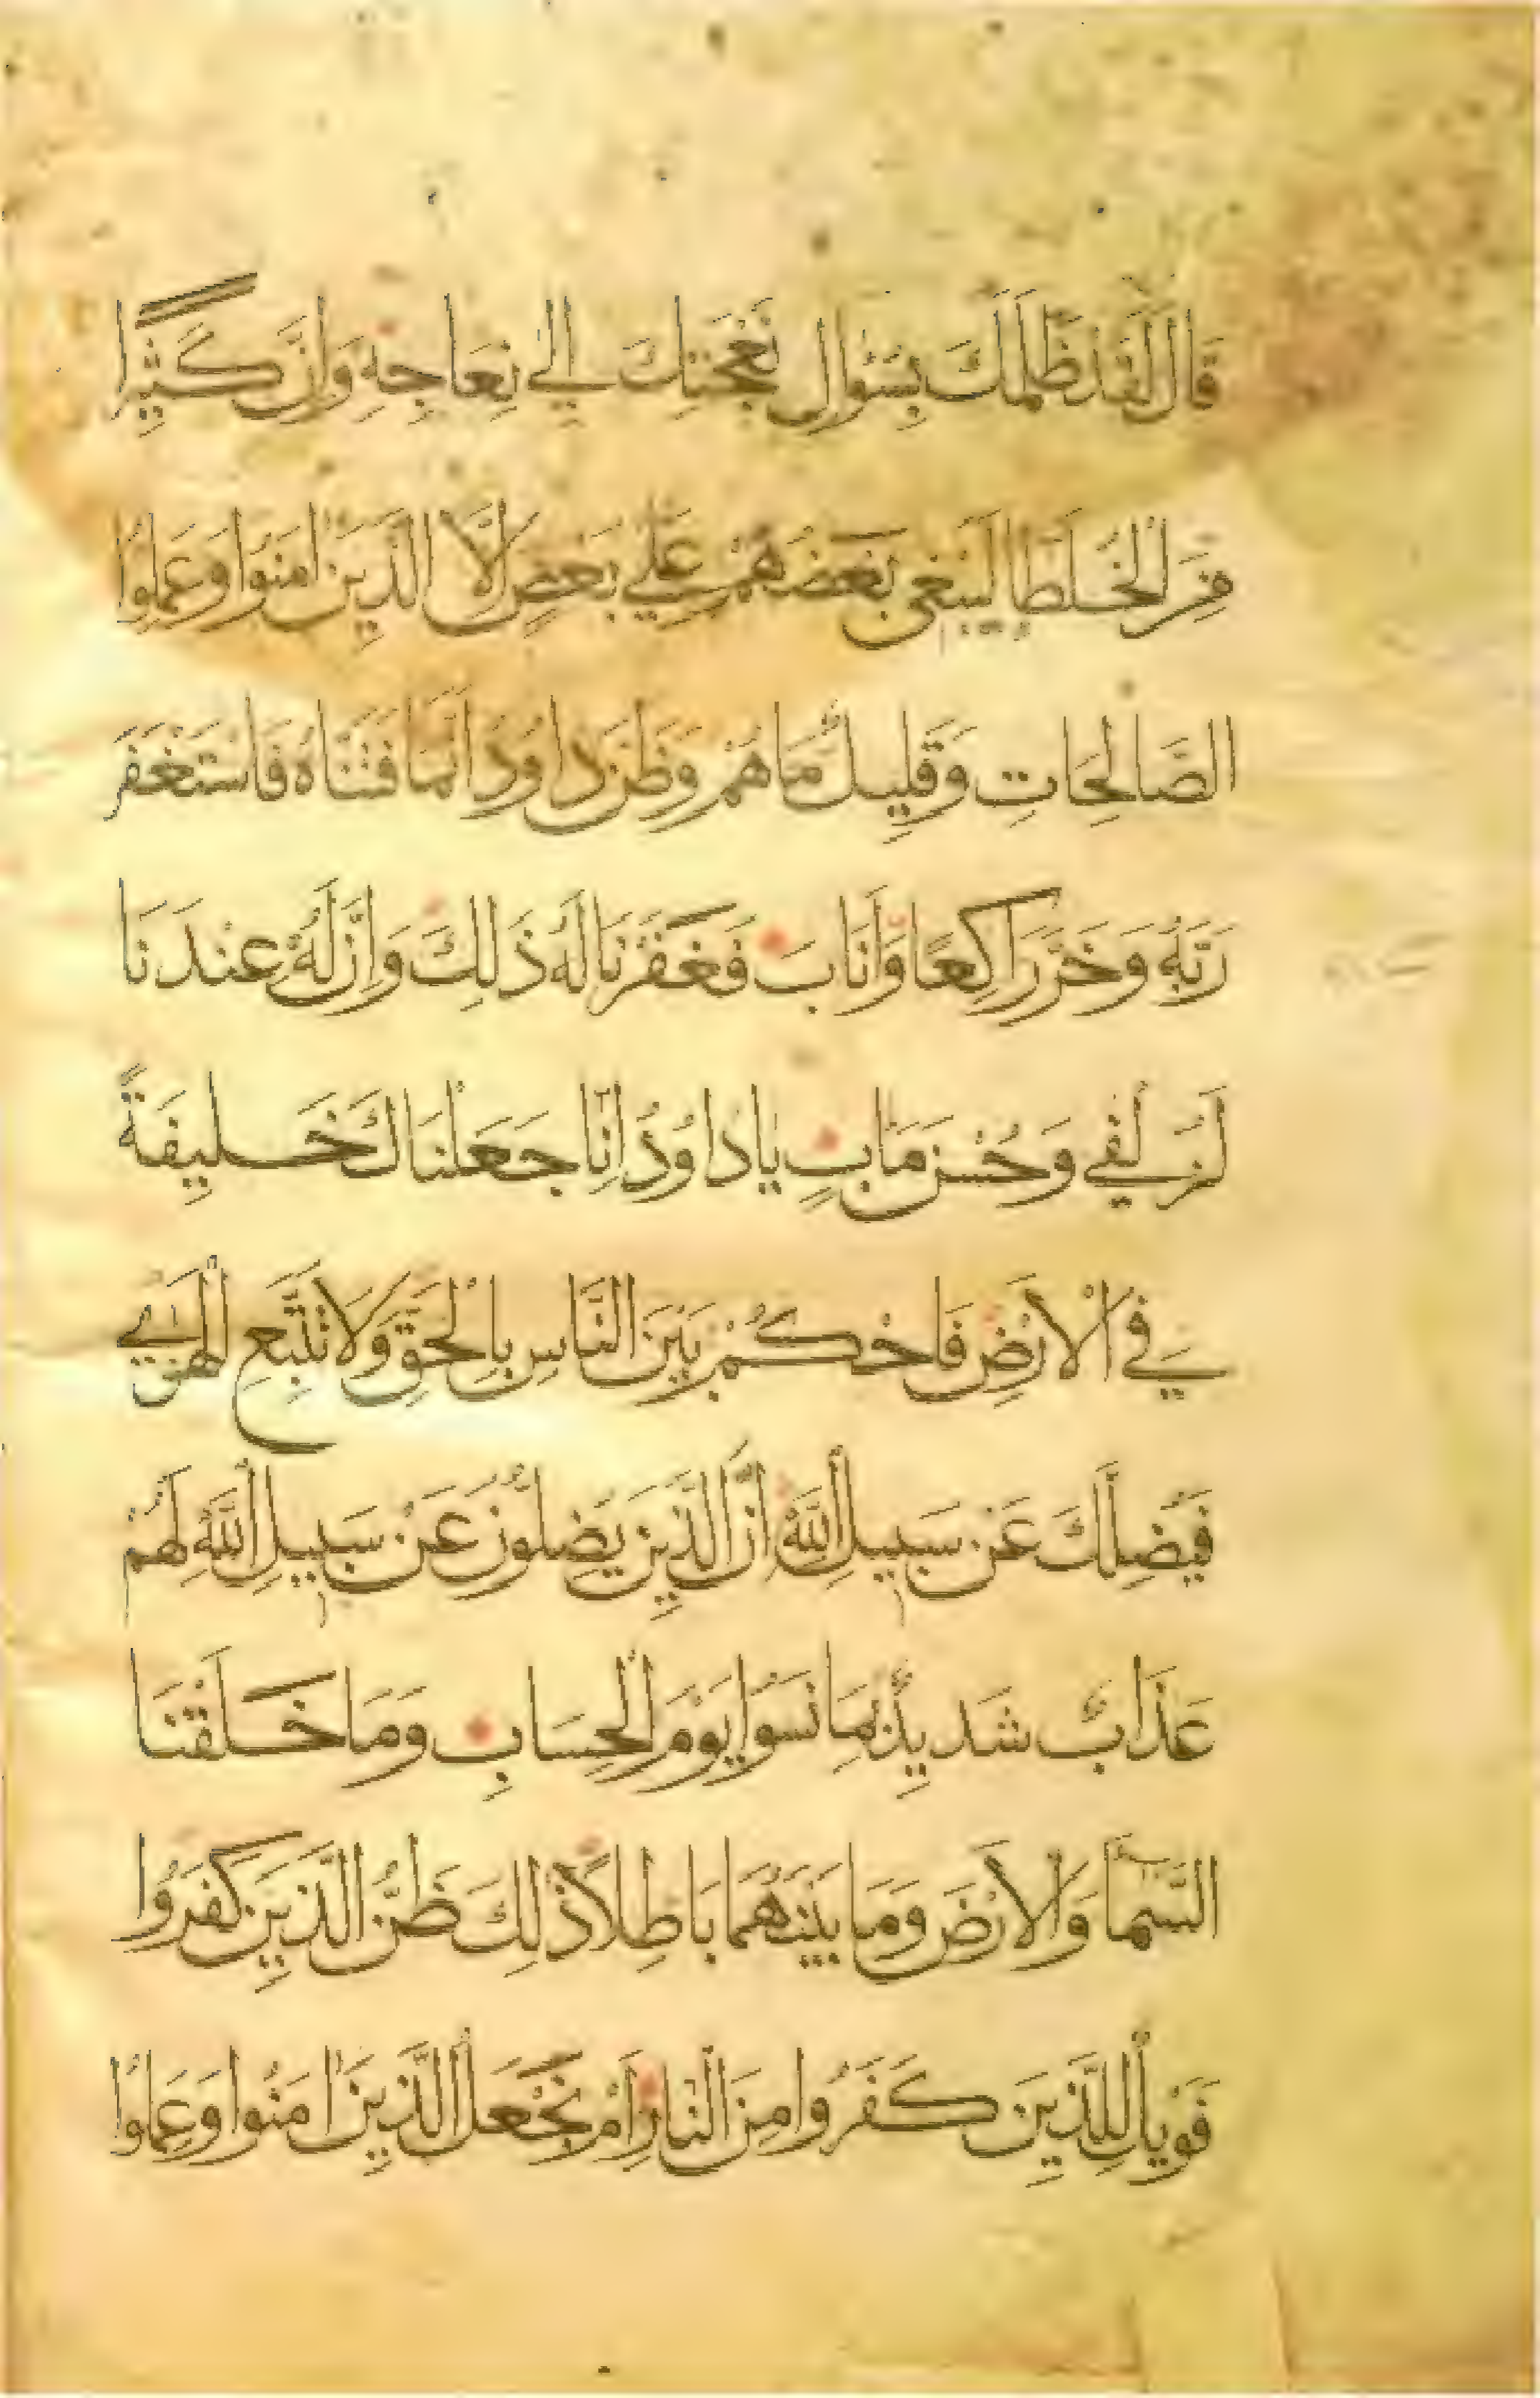 قَالَ لَقَدْ ظَلَمَكَ بِسُؤَالِ نَعْجَتِكَ إِلَى نِعَاجِهِ وَإِنَّ كَثِيرًا
مِنَ الْخُلَطَا لَيَبْغِي بَعْضُهُمْ عَلَى بَعْضٍ إِلَّا الَّذِينَ امَنُوا وَعَمِلُوا
الصَّالِحَاتِ وَقَلِيلٌ مَا هُمْ وَظَنَّ دَاوُدُ أَنَّمَا فَتَنَّاهُ فَاسْتَغْفَرَ
رَبَّهُ وَخَرَّ رَاكِعًا وَأَنَابَ فَغَفَرْنَا لَهُ ذَلِكَ وَإِنَّ لَهُ عِنْدَنَا
لَزُلْفَى وَحُسْنَ مَابٍ يَا دَاوُدُ إِنَّا جَعَلْنَاكَ خَلِيفَةً
فِي الْأَرْضِ فَاحْكُمْ بَيْنَ النَّاسِ بِالْحَقِّ وَلَا تَتَّبِعِ الْهَوَى
فَيُضِلَّكَ عَنْ سَبِيلِ اللَّهِ إِنَّ الَّذِينَ يَضِلُّونَ عَنْ سَبِيلِ اللَّهِ لَهُمْ
عَذَابٌ شَدِيدٌ بِمَا نَسُوا يَوْمَ الْحِسَابِ وَمَا خَلَقْنَا
السَّمَا وَالْأَرْضَ وَمَا بَيْنَهُمَا بَاطِلًا ذَلِكَ ظَنُّ الَّذِينَ كَفَرُوا
فَوَيْلٌ لِلَّذِينَ كَفَرُوا مِنَ النَّارِ أَمْ نَجْعَلُ الَّذِينَ امَنُوا وَعَمِلُوا